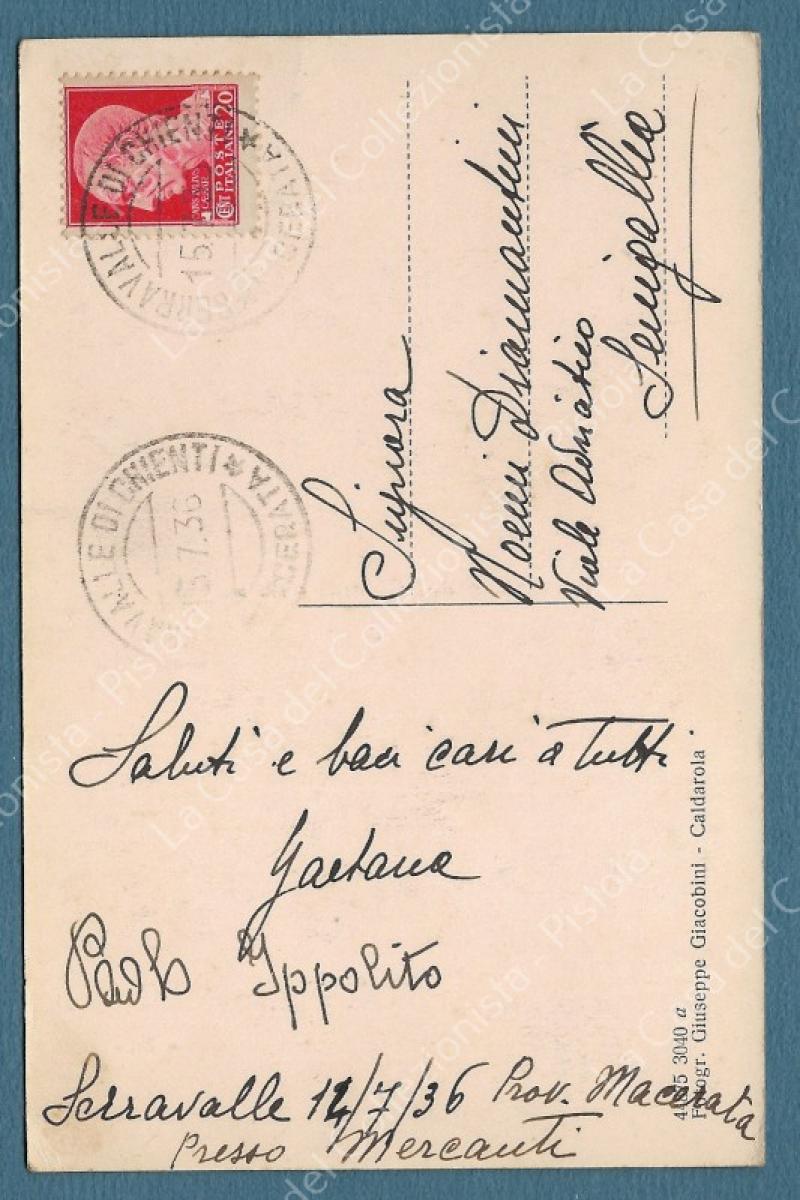 POSTE ITALIANE 20
SERRAVALLE DI CHIENTI * MACERATA
15
AVALLE DI CHIENTI * CERATA
15.7.36
Signora
Noemi Diamantini
Viale Adriatico
Senigallia
Saluti e baci cari a tutti
Gaetana
Paolo Ippolito
Serravalle 14/7/36 Prov. Macerata
Presso Mercanti
3040 a
Fotogr. Giuseppe Giacobini - Caldarola
La Casa del Collezionista - Pistoia